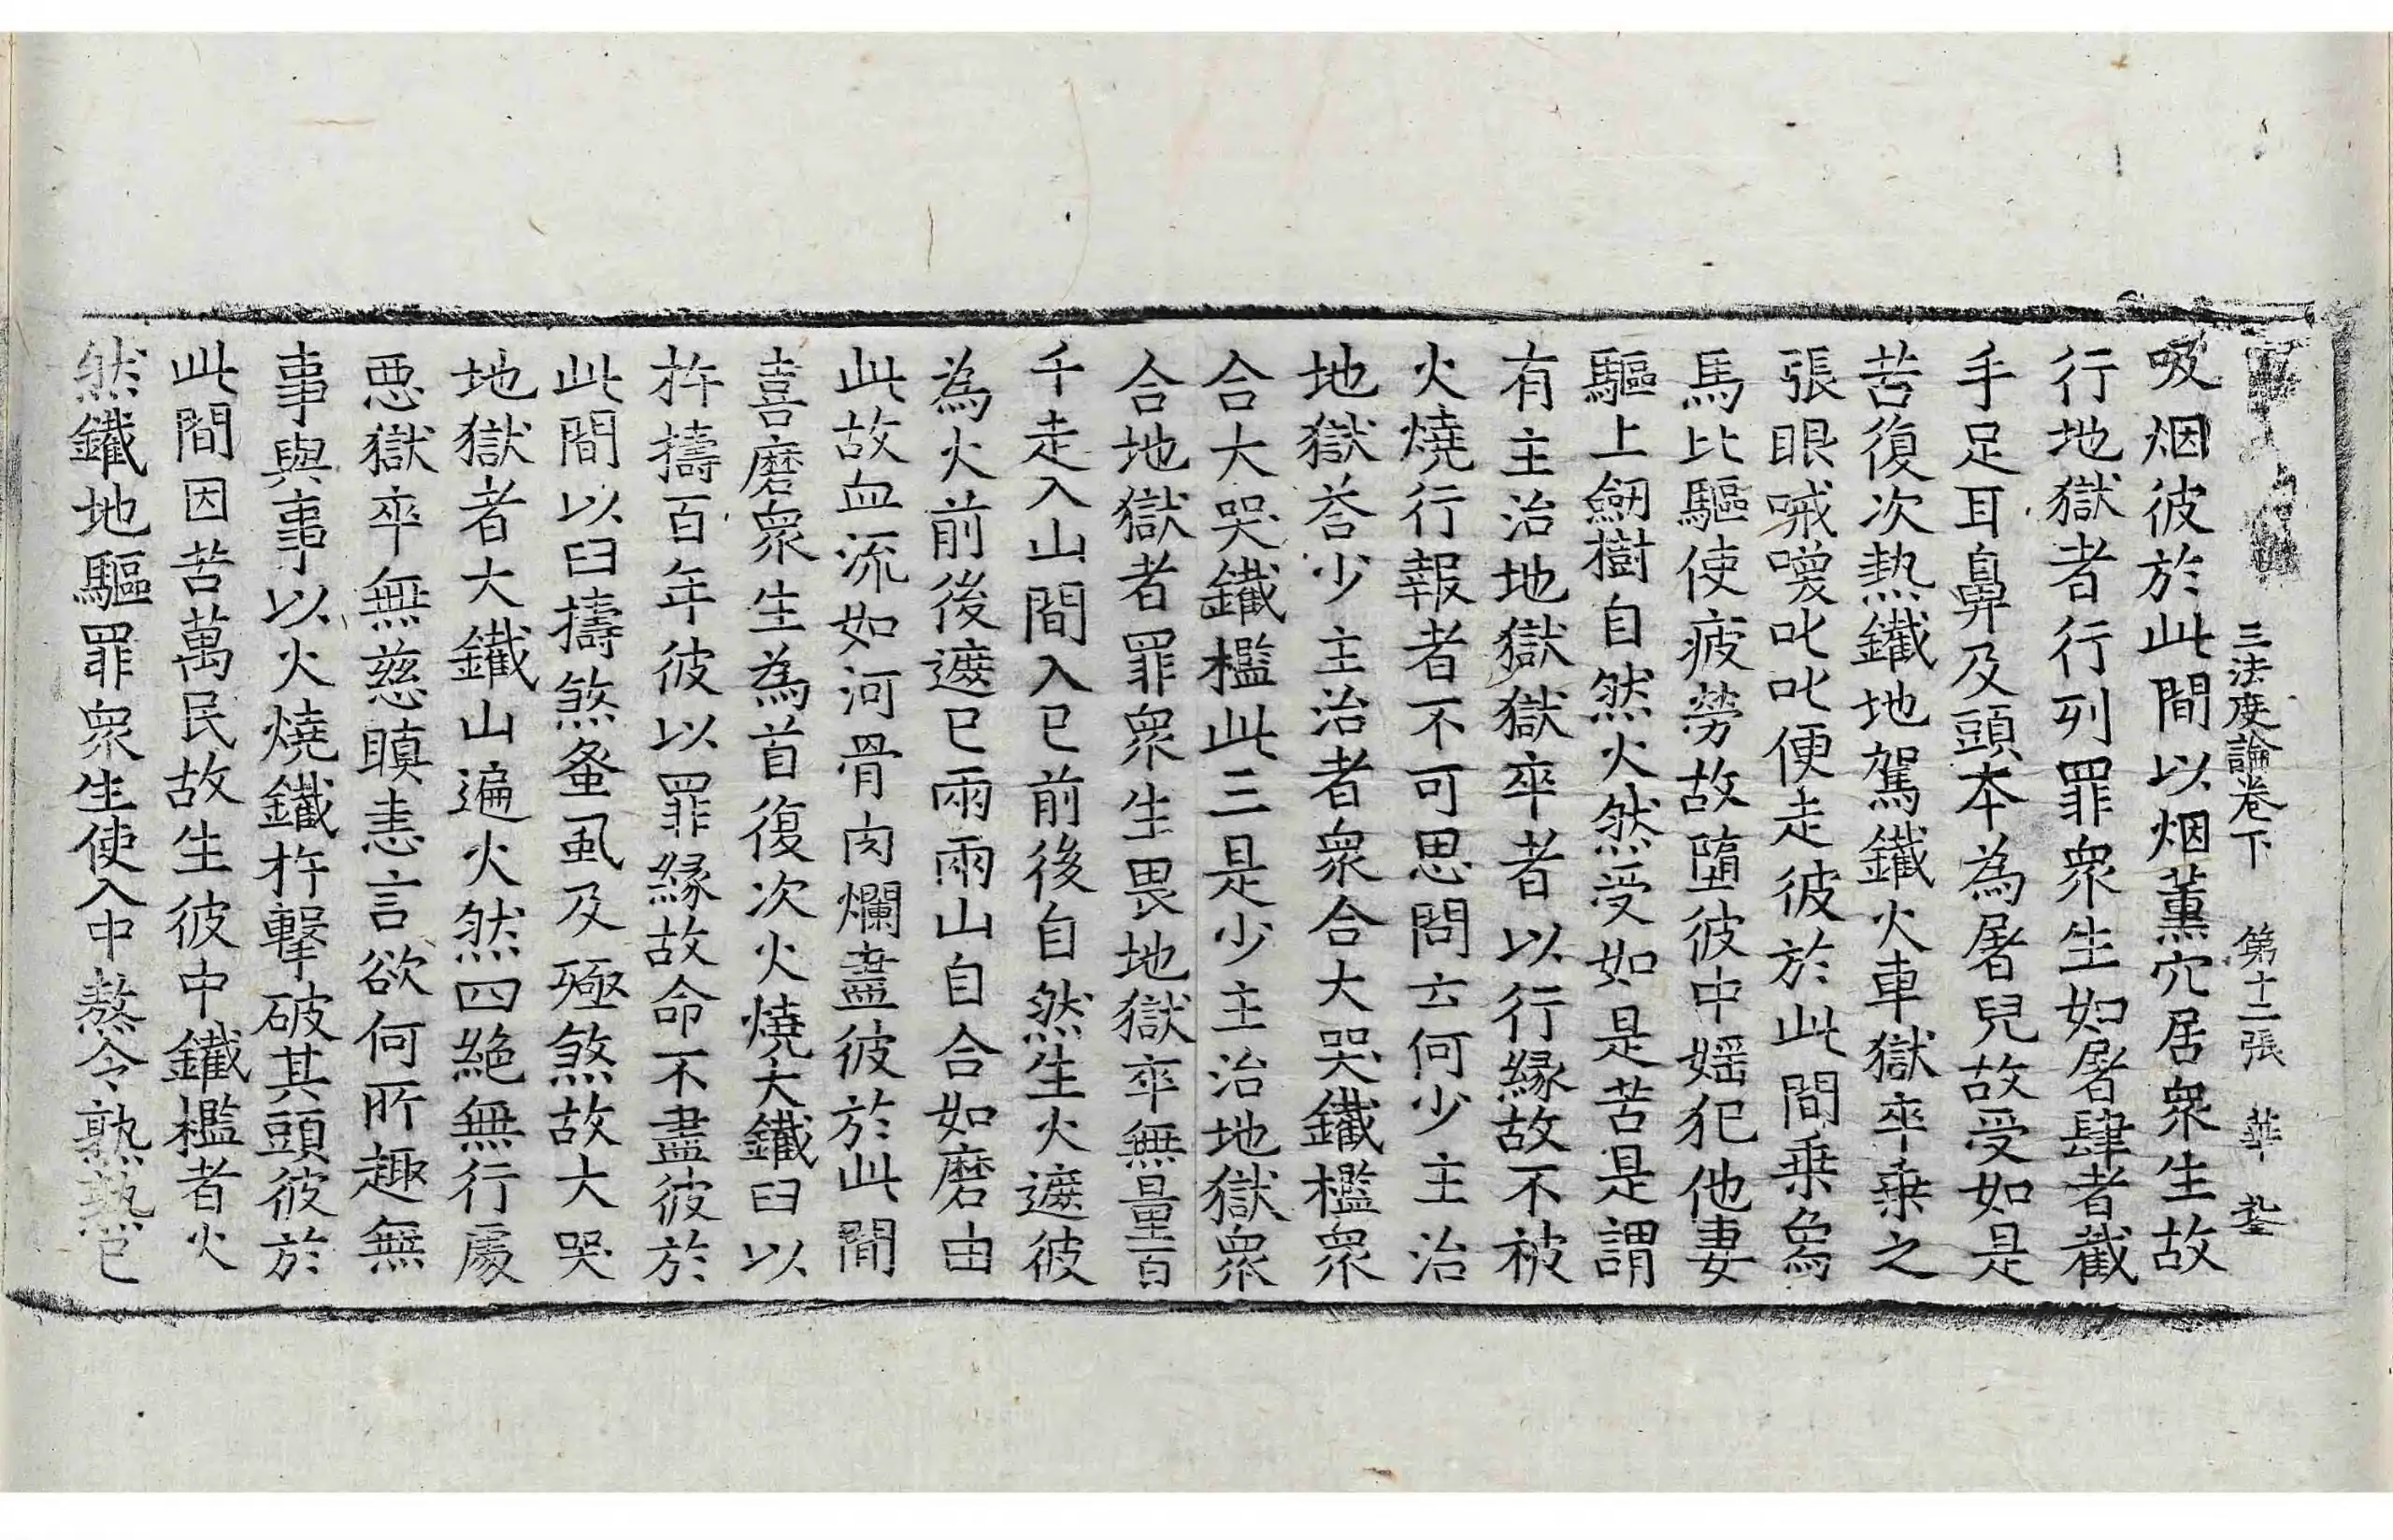 三法度論卷下 第十二張 華
吸烟彼於此間以烟薰穴居衆生故
行地獄者行列罪衆生如屠肆者截
手足耳鼻及頭本為屠兒故受如是
苦復次熱鐵地駕鐵火車獄卒乗之
張眼喊喚叱叱便走彼於此間乗象
馬比驅使疲勞故墮彼中婬犯他妻
驅上劒樹自然火然受如是苦是謂
有主治地獄獄卒者以行緣故不被
火燒行報者不可思問云何少主治
地獄荅少主治者衆合大哭鐵檻衆
合大哭鐵檻此三是少主治地獄衆
合地獄者罪衆生畏地獄卒無量百
千走入山間入已前後自然生火遮彼
為火前後遮已兩兩山自合如磨由
此故血流如河骨肉爛盡彼於此間
喜磨衆生為首復次火燒大鐵臼以
杵擣百年彼以罪緣故命不盡彼於
此間以臼擣煞蚤虱及殛煞故大哭
地獄者大鐵山遍火然四絶無行處
惡獄卒無慈瞋恚言欲何所趣無
事與事以火燒鐵杵擊破其頭彼於
此間因苦萬民故生彼中鐵檻者火
然鐵地驅罪衆生使入中熬令熟熟已